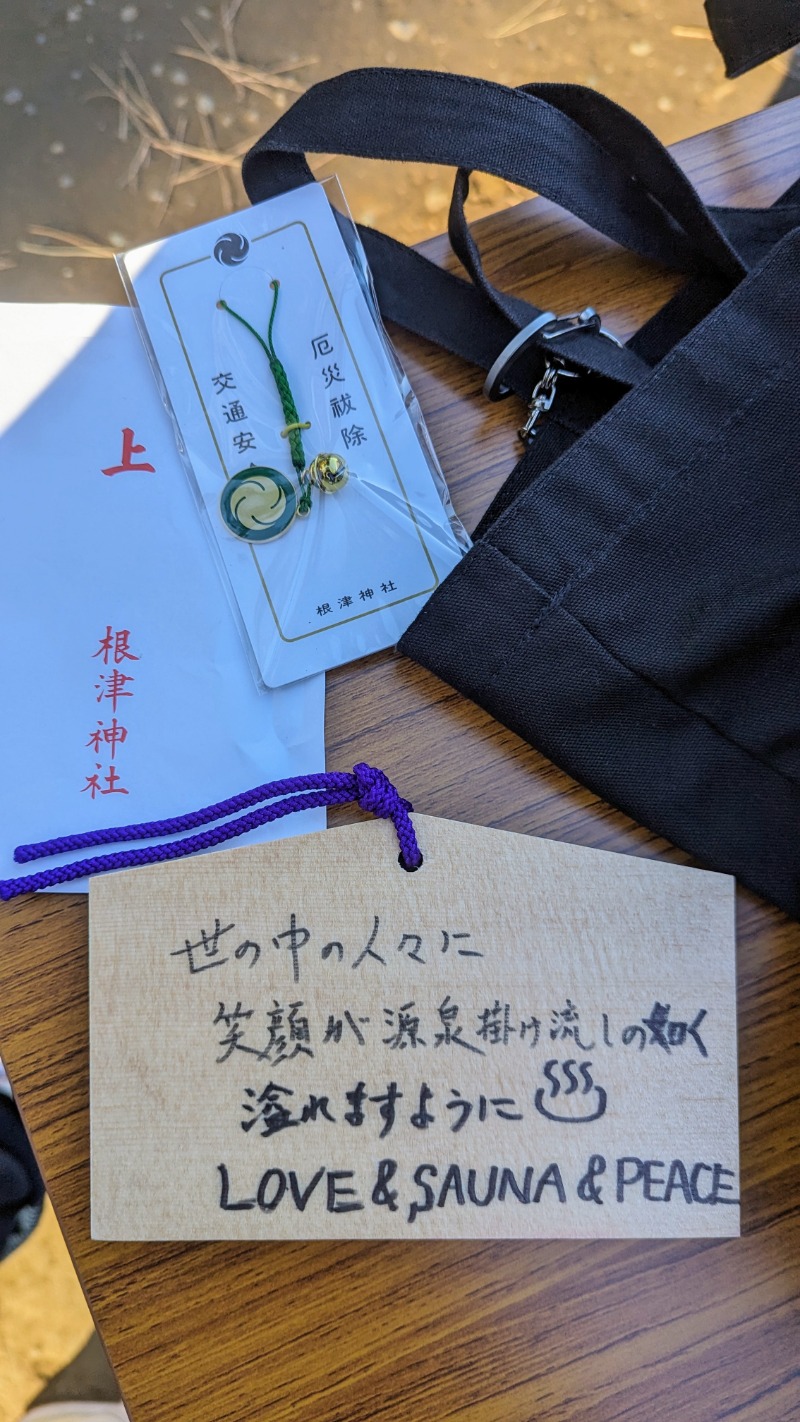 厄災祓除
交通安
根津神社
上
根津神社
世の中の人々に
笑顔が源泉掛け流しの如く
溢れますように♨
LOVE & SAUNA & PEACE